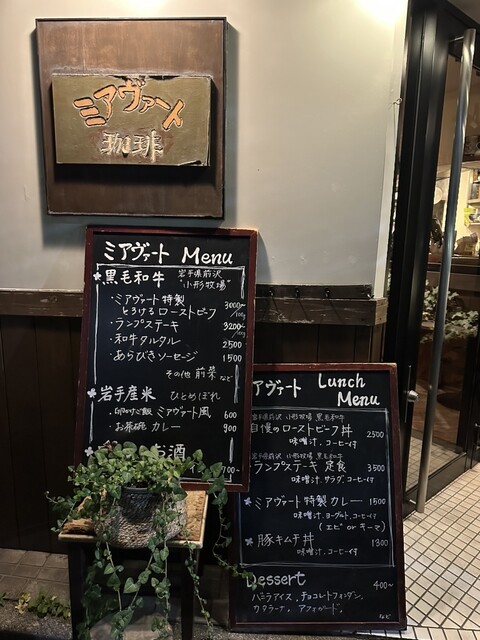 ミアヴァート
珈琲
ミアヴァート Menu
黒毛和牛 岩手県前沢
"小形牧場"
・ミアヴァート特製
とろける ローストビーフ 3000〜/100g
・ランプステーキ 3200〜/100g
・和牛タルタル 2500
・あらびきソーセージ 1500
その他 前菜 など
岩手産米 ひとめぼれ
・卵かけご飯 ミアヴァート風 600
・お茶碗 カレー 900
お酒
00〜
アヴァート Lunch
Menu
岩手県前沢 小形牧場 黒毛和牛
自慢のローストビーフ丼 2500
味噌汁、コーヒー付
岩手県前沢 小形牧場 黒毛和牛
ランプステーキ 定食 3500
味噌汁、サラダ、コーヒー付
ミアヴァート特製カレー 1500
味噌汁、ヨーグルト、コーヒー付
(エビ or キーマ)
豚キムチ丼 1300
味噌汁、コーヒー付
Dessert 400〜
バニラアイス、チョコレートフォンダン、
カタラーナ、アフォガード、
など